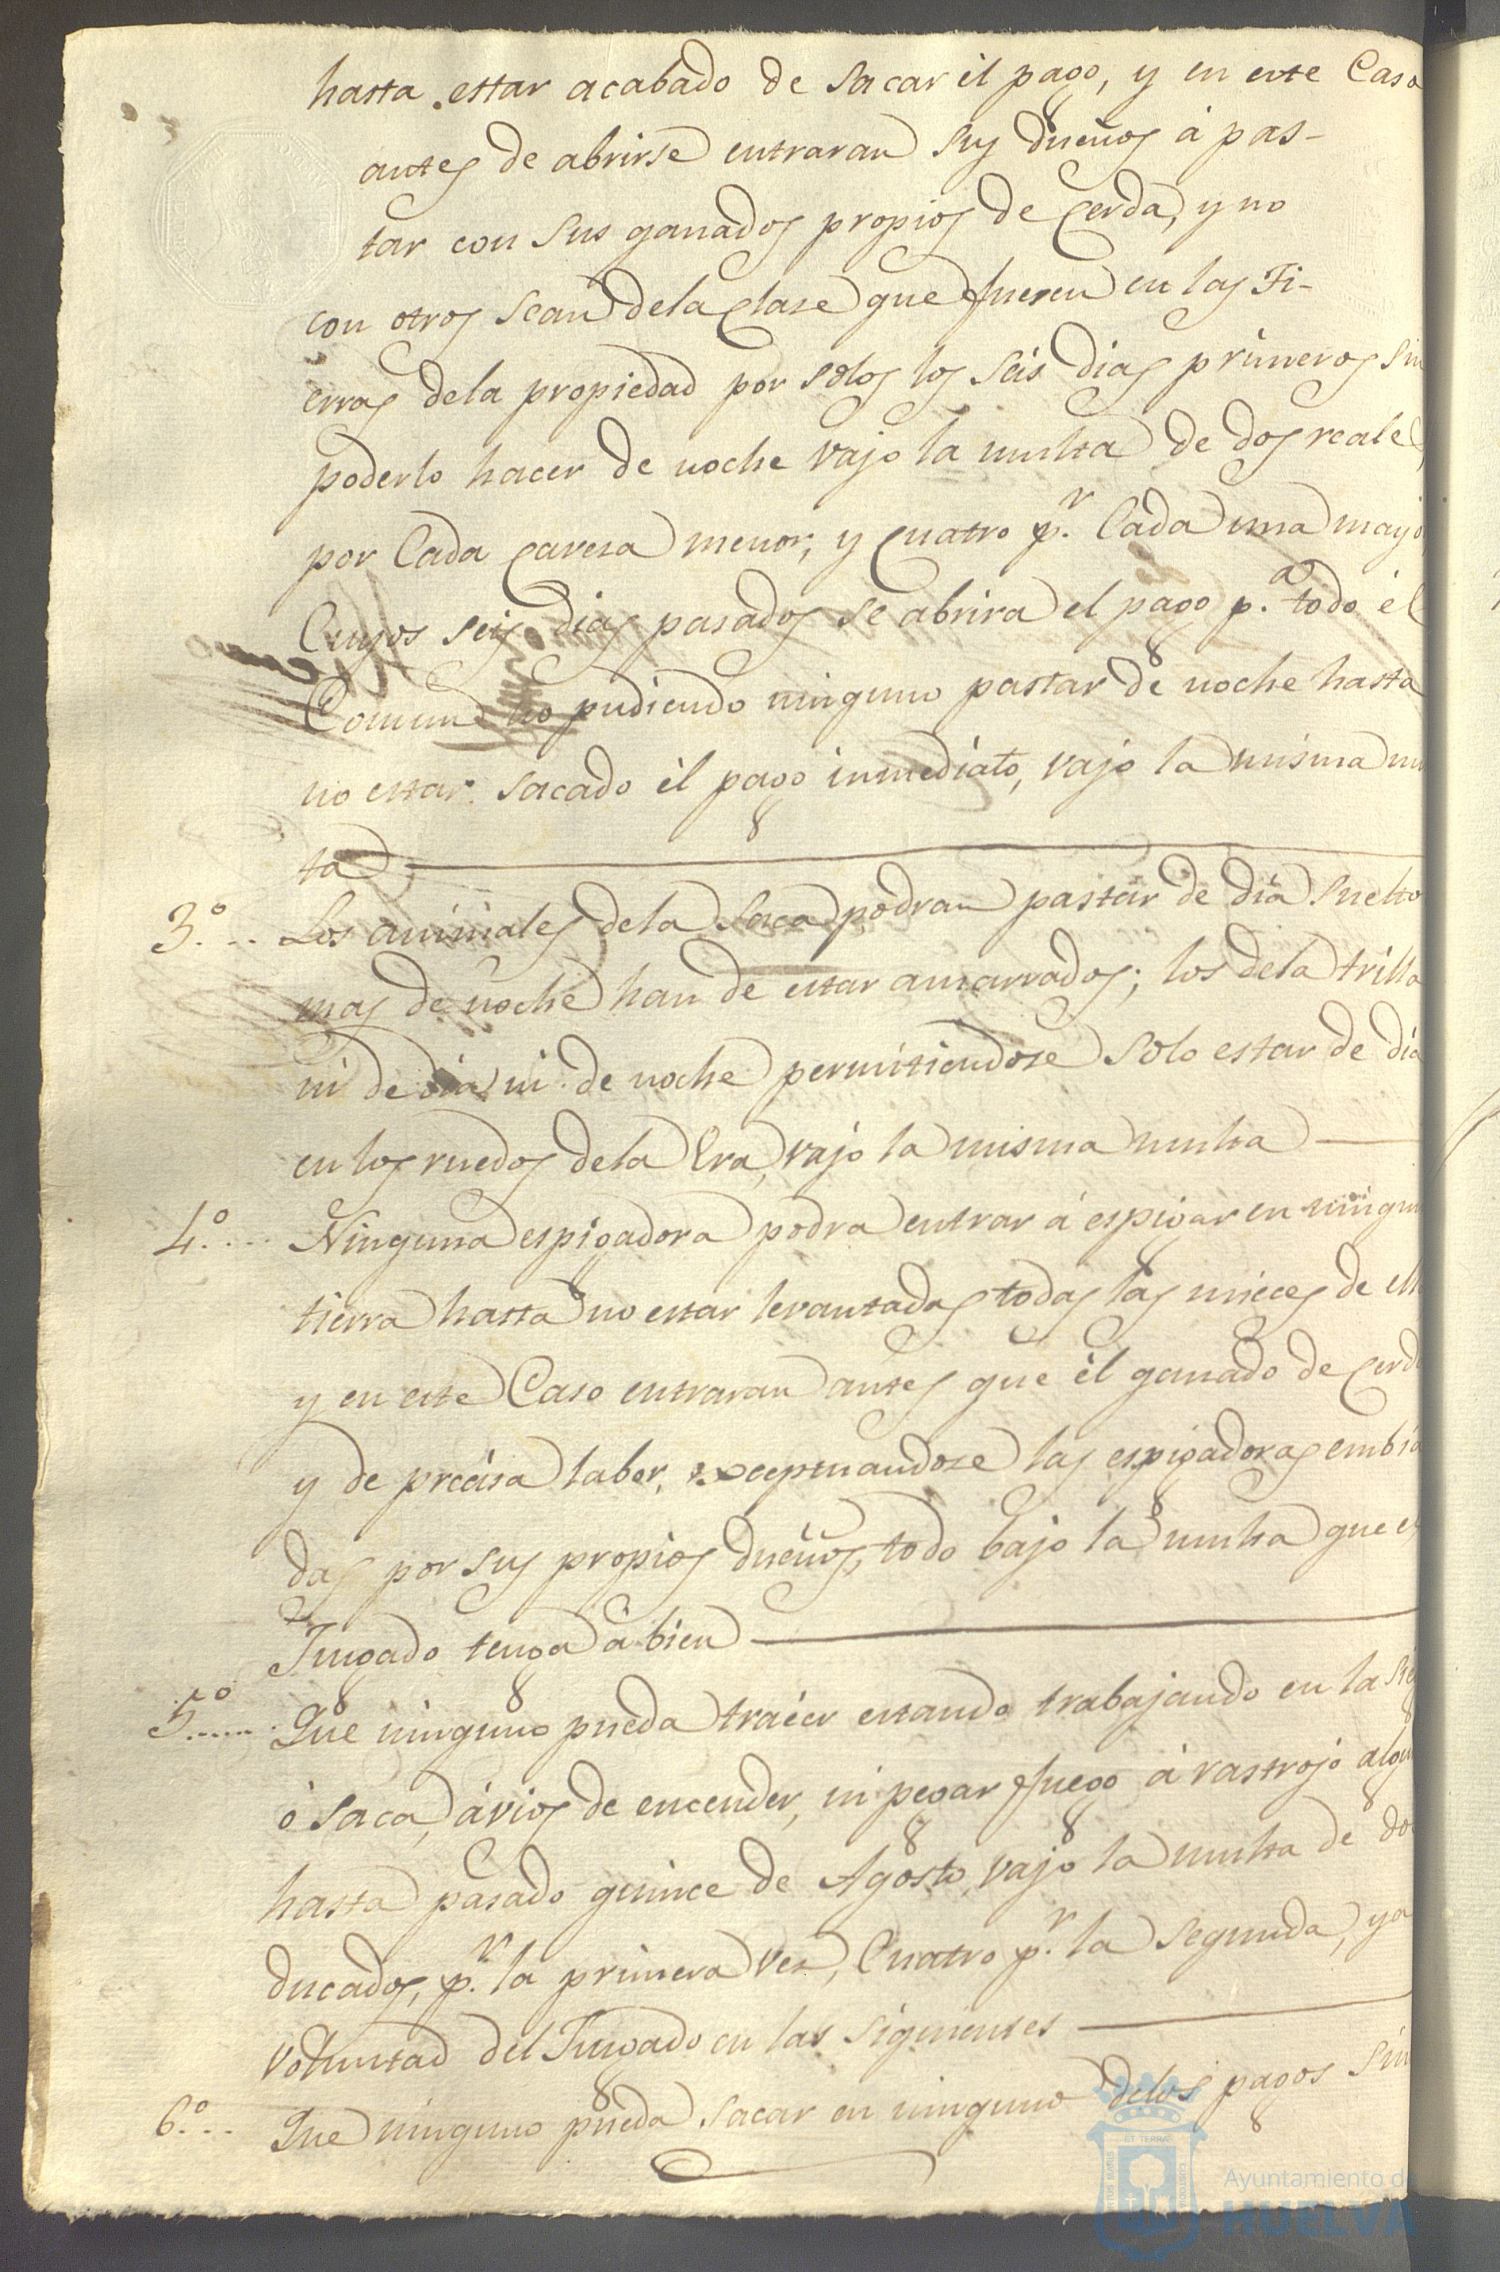 hasta estar acabado de Sacar él pago, y en este Caso
antes de abrirse entraran Sus dueños á pas-
tar con Sus ganados propios de Cerda, y no
con otros Sean dela Clase que fueren en las Ti-
erras dela propiedad por solos los Seis Dias primeros sin
poderlo hacer de noche vajo la multa de dos reales
por Cada Cavesa menor, y Cuatro p.r Cada una mayo
Cuyos seis Dias pasados Se abrira el pago p.a todo él
Comun no pudiendo ninguno pastar de noche hasta
no estar Sacado él pago inmediato, vajo la misma mu
ta
3.º Los animales dela Saca podran pastar de dia Suelto
mas de noche han de estar amarrados; los dela trilla
ni de dia ni de noche permitiendose Solo estar de dia
en los ruedos dela Era, vajo la misma multa
4.º Ninguna espigadora podra entrar á espigar en ningun
tierra hasta no estar levantadas todas las mieces de ell
y en este Caso entraran antes que él ganado de Cerd
y de precisa labor, exceptuandose las espigadoras embia
das por Sus propios dueños, todo bajo la multa que e
Juzgado tenga á bien
5.º Que ninguno pueda traéer estando trabajando en la Sieg
ó Saca, ávios de encender, ni pegar fuego á rastrojo algu
hasta pasado quince de Agosto, vajo la multa de do
ducados, p.r la primera vez, Cuatro p.r la Segunda, ya
voluntad del Juzgado en las Siguientes
6.º Que ninguno pueda Sacar en ninguno delos pagos Sin
Ayuntamiento de
HUELVA